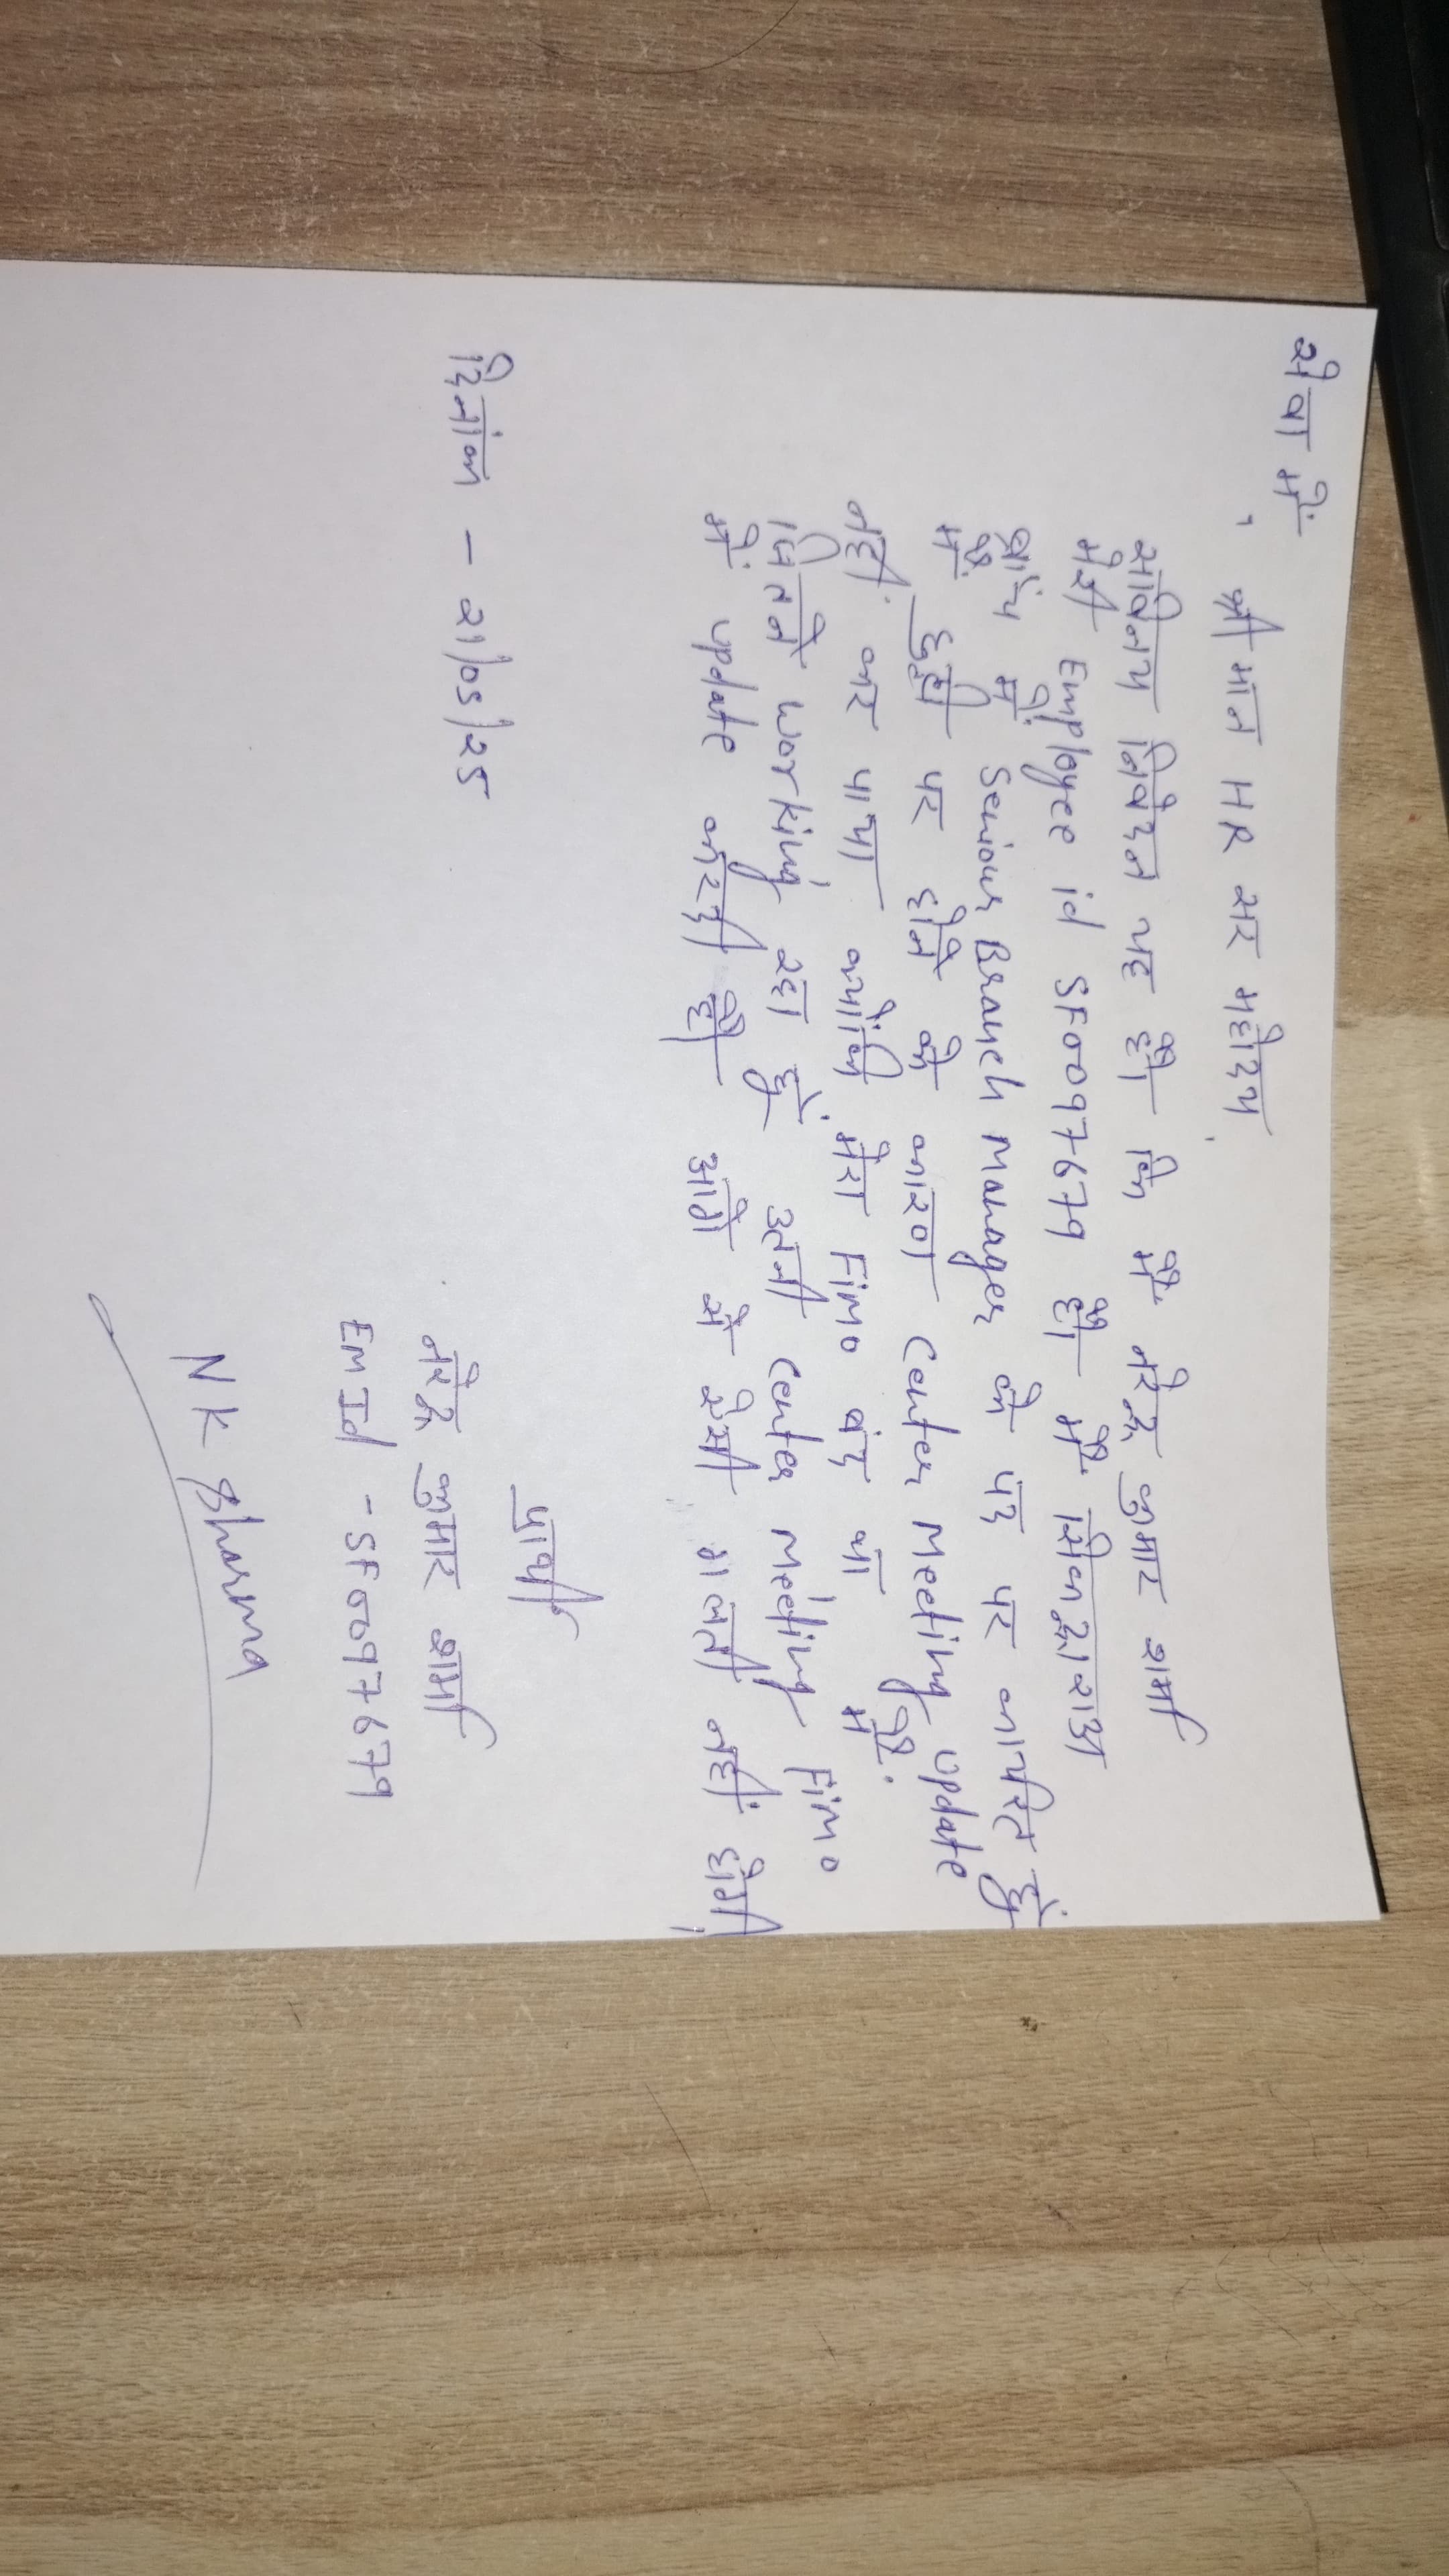 सेवा में,
श्री मान HR सर महोदय
सविनय निवेदन यह है कि मैं नरेन्द्र कुमार शर्मा
मेरी Employee id SF0097679 है मैं सिकन्द्राराऊ
ब्रांच में Senior Branch Manager के पद पर कार्यरत हूं
मैं छुट्टी पर होने के कारण Center Meeting update
नहीं कर पाया क्योंकि मेरा Fimo बंद था मैं
जितने working रहा हूं उतनी Center Meeting Fimo
में update करदी है आगे से ऐसी गलती नहीं होगी
प्रार्थी
दिनांक - 21/05/25
नरेन्द्र कुमार शर्मा
Em Id - SF0097679
N K Sharma